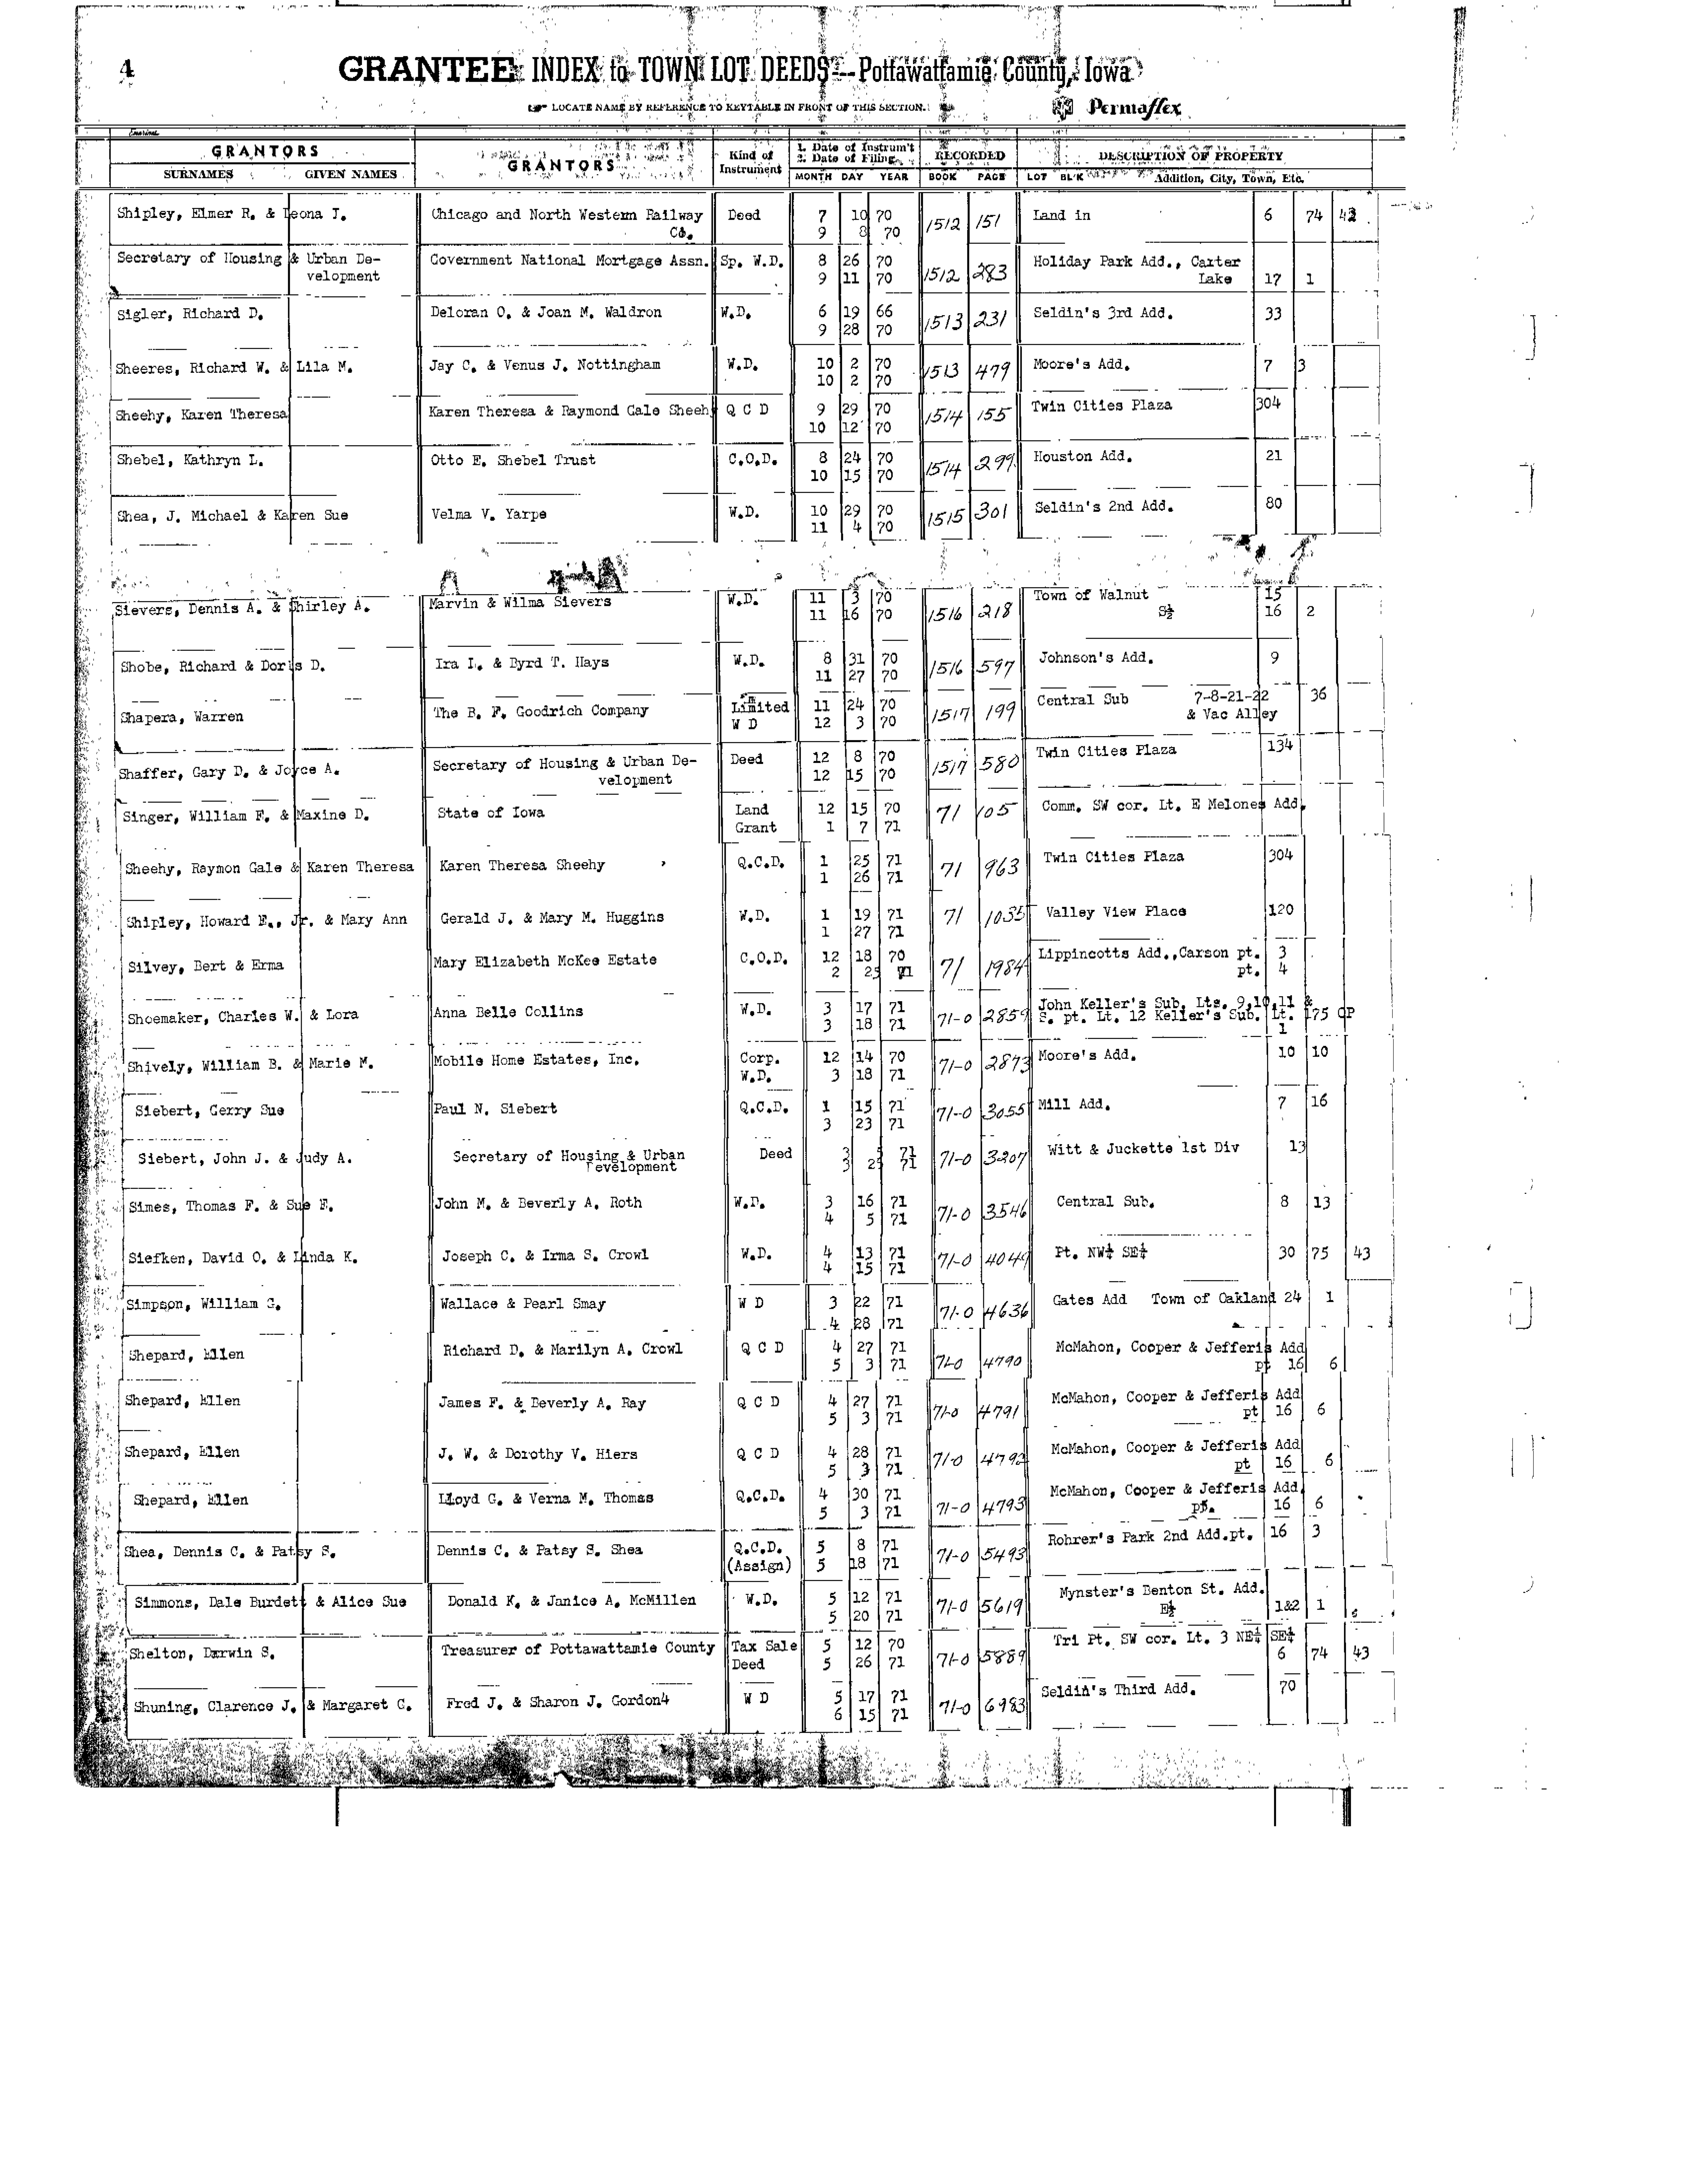 4
GRANTEE INDEX to TOWN LOT DEEDS--Pottawattamie County, Iowa
LOCATE NAME BY REFERENCE TO KEYTABLE IN FRONT OF THIS SECTION. Permaflex
GRANTORS GRANTORS Kind of Instrument 1. Date of Instrum't 2. Date of Filing RECORDED DESCRIPTION OF PROPERTY
SURNAMES GIVEN NAMES MONTH DAY YEAR BOOK PAGE LOT BL'K Addition, City, Town, Etc.
Shipley, Elmer R. & Leona J. Chicago and North Western Railway Deed 7 10 70 1512 151 Land in 6 74 43
Co. 9 8 70
Secretary of Housing & Urban De- Government National Mortgage Assn. Sp. W.D. 8 26 70 1512 283 Holiday Park Add., Carter
velopment 9 11 70 Lake 17 1
Sigler, Richard D. Deloran O. & Joan M. Waldron W.D. 6 19 66 1513 231 Seldin's 3rd Add. 33
9 28 70
Sheeres, Richard W. & Lila M. Jay C. & Venus J. Nottingham W.D. 10 2 70 1513 479 Moore's Add. 7 3
10 2 70
Sheehy, Karen Theresa Karen Theresa & Raymond Gale Sheeh Q C D 9 29 70 1514 155 Twin Cities Plaza 304
10 12 70
Shebel, Kathryn L. Otto E. Shebel Trust C.O.D. 8 24 70 1514 299 Houston Add. 21
10 15 70
Shea, J. Michael & Karen Sue Velma V. Yarpe W.D. 10 29 70 1515 301 Seldin's 2nd Add. 80
11 4 70
Sievers, Dennis A. & Shirley A. Marvin & Wilma Sievers W.D. 11 3 70 1516 218 Town of Walnut 15
11 16 70 S½ 16 2
Shobe, Richard & Doris D. Ira I. & Byrd T. Hays W.D. 8 31 70 1516 597 Johnson's Add. 9
11 27 70
Shapera, Warren The B. F. Goodrich Company Limited 11 24 70 1517 199 Central Sub 7-8-21-22 36
W D 12 3 70 & Vac Alley
Shaffer, Gary D. & Joyce A. Secretary of Housing & Urban De- Deed 12 8 70 1517 580 Twin Cities Plaza 134
velopment 12 15 70
Singer, William F. & Maxine D. State of Iowa Land 12 15 70 71 105 Comm. SW cor. Lt. E Melones Add.
Grant 1 7 71
Sheehy, Raymon Gale & Karen Theresa Karen Theresa Sheehy Q.C.D. 1 25 71 71 963 Twin Cities Plaza 304
1 26 71
Shipley, Howard E., Jr. & Mary Ann Gerald J. & Mary M. Huggins W.D. 1 19 71 71 1035 Valley View Place 120
1 27 71
Silvey, Bert & Erma Mary Elizabeth McKee Estate C.O.D. 12 18 70 71 1984 Lippincotts Add., Carson pt. 3
2 25 71 pt. 4
Shoemaker, Charles W. & Lora Anna Belle Collins W.D. 3 17 71 71-0 2859 John Keller's Sub. Lts. 9,10,11 &
3 18 71 S. pt. Lt. 12 Keller's Sub. Lt. 175 OP
1
Shively, William B. & Marie M. Mobile Home Estates, Inc. Corp. 12 14 70 71-0 2873 Moore's Add. 10 10
W.D. 3 18 71
Siebert, Gerry Sue Paul N. Siebert Q.C.D. 1 15 71 71-0 3055 Mill Add. 7 16
3 23 71
Siebert, John J. & Judy A. Secretary of Housing & Urban Deed 3 71 71-0 3207 Witt & Juckette 1st Div 13
Development 3 71
Simes, Thomas F. & Sue F. John M. & Beverly A. Roth W.D. 3 16 71 71-0 3546 Central Sub. 8 13
4 5 71
Siefken, David O. & Linda K. Joseph C. & Irma S. Crowl W.D. 4 13 71 71-0 4049 Pt. NW¼ SE¼ 30 75 43
4 15 71
Simpson, William G. Wallace & Pearl Smay W D 3 22 71 71-0 4636 Gates Add Town of Oakland 24 1
4 28 71
Shepard, Ellen Richard D. & Marilyn A. Crowl Q C D 4 27 71 71-0 4790 McMahon, Cooper & Jefferis Add
5 3 71 pt 16 6
Shepard, Ellen James F. & Beverly A. Ray Q C D 4 27 71 71-0 4791 McMahon, Cooper & Jefferis Add
5 3 71 pt 16 6
Shepard, Ellen J. W. & Dorothy V. Hiers Q C D 4 28 71 71-0 4792 McMahon, Cooper & Jefferis Add
5 3 71 pt 16 6
Shepard, Ellen Lloyd G. & Verna M. Thomas Q.C.D. 4 30 71 71-0 4793 McMahon, Cooper & Jefferis Add.
5 3 71 pt. 16 6
Shea, Dennis C. & Patsy S. Dennis C. & Patsy S. Shea Q.C.D. 5 8 71 71-0 5493 Rohrer's Park 2nd Add.pt. 16 3
(Assign) 5 18 71
Simmons, Dale Burdett & Alice Sue Donald K. & Janice A. McMillen W.D. 5 12 71 71-0 5619 Mynster's Benton St. Add.
5 20 71 E½ 1&2 1
Shelton, Darwin S. Treasurer of Pottawattamie County Tax Sale 5 12 70 71-0 5889 Tri Pt. SW cor. Lt. 3 NE¼ SE¼
Deed 5 26 71 6 74 43
Shuning, Clarence J. & Margaret C. Fred J. & Sharon J. Gordon4 W D 5 17 71 71-0 6983 Seldin's Third Add. 70
6 15 71